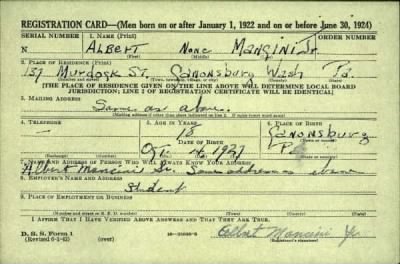 REGISTRATION CARD—(Men born on or after January 1, 1922 and on or before June 30, 1924)
SERIAL NUMBER
1. NAME (Print)
ORDER NUMBER
N
ALBERT None MANCINI Jr.
(First) (Middle) (Last)
2. PLACE OF RESIDENCE (Print)
157 Murdock ST. Canonsburg Wash Pa.
(Number and street) (Town, township, village, or city) (County) (State)
[THE PLACE OF RESIDENCE GIVEN ON THE LINE ABOVE WILL DETERMINE LOCAL BOARD
JURISDICTION; LINE 2 OF REGISTRATION CERTIFICATE WILL BE IDENTICAL]
3. MAILING ADDRESS
Same as above.
[Mailing address if other than place indicated on line 2. If same insert word same]
4. TELEPHONE
5. AGE IN YEARS
6. PLACE OF BIRTH
18
Canonsburg
DATE OF BIRTH
Oct. 4, 1927
Pa
7. NAME AND ADDRESS OF PERSON WHO WILL ALWAYS KNOW YOUR ADDRESS
Albert Mancini Sr. Same address as above
8. EMPLOYER'S NAME AND ADDRESS
Student
9. PLACE OF EMPLOYMENT OR BUSINESS
I AFFIRM THAT I HAVE VERIFIED ABOVE ANSWERS AND THAT THEY ARE TRUE.
D. S. S. Form 1
(over)
Albert Mancini Jr.
(Registrant's signature)